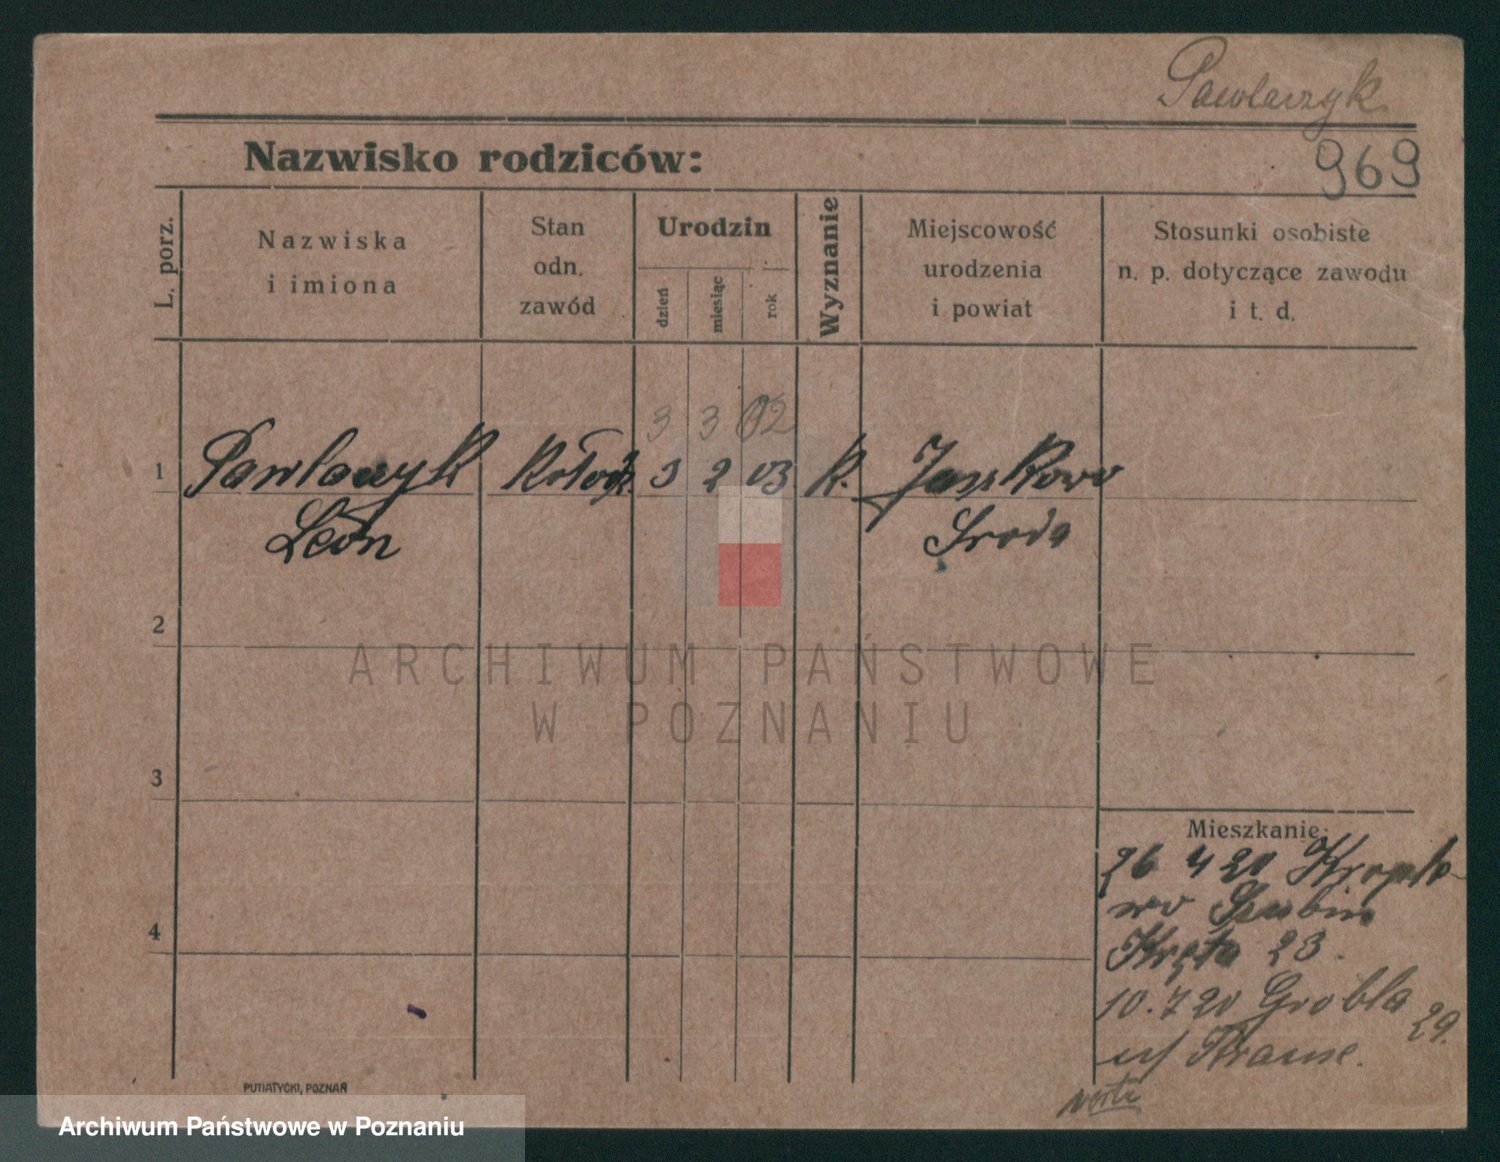 Pawlaczyk
969
Nazwisko rodziców:
L. porz.
Nazwiska
i imiona
Stan
odn.
zawód
Urodzin
dzień
miesiąc
rok
Wyznanie
Miejscowość
urodzenia
i powiat
Stosunki osobiste
n. p. dotyczące zawodu
i t. d.
3 3 02
1 Pawlaczyk Kołodz. 3 2 03 k. Jaszkowo
Leon Sroda
2
3
4
Mieszkanie:
26 4 20
wo Szubin
Kręta 23.
10. 7 20 Grobla 29.
u/ Krause.
verte
PUTIATYCKI, POZNAŃ
ARCHIWUM PAŃSTWOWE
W POZNANIU
Archiwum Państwowe w Poznaniu